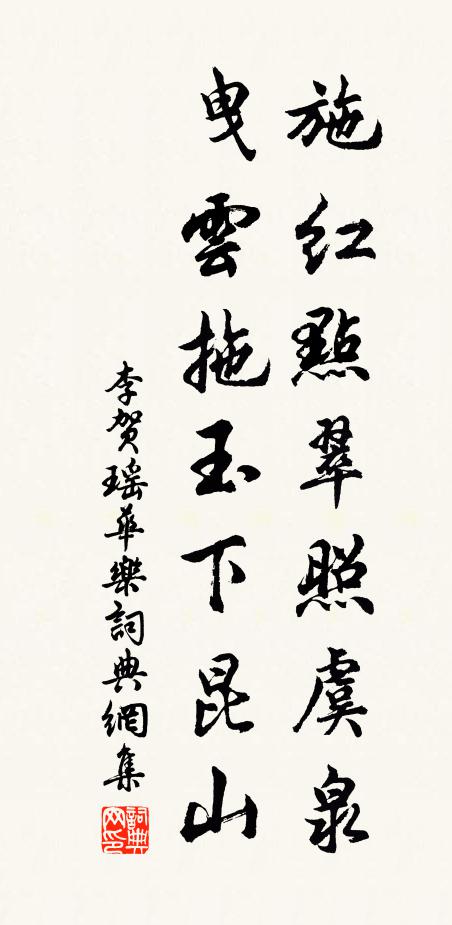 施紅點翠照虞泉
曳雲拖玉下昆山
李賀瑶華樂詞典網集
詞典網印